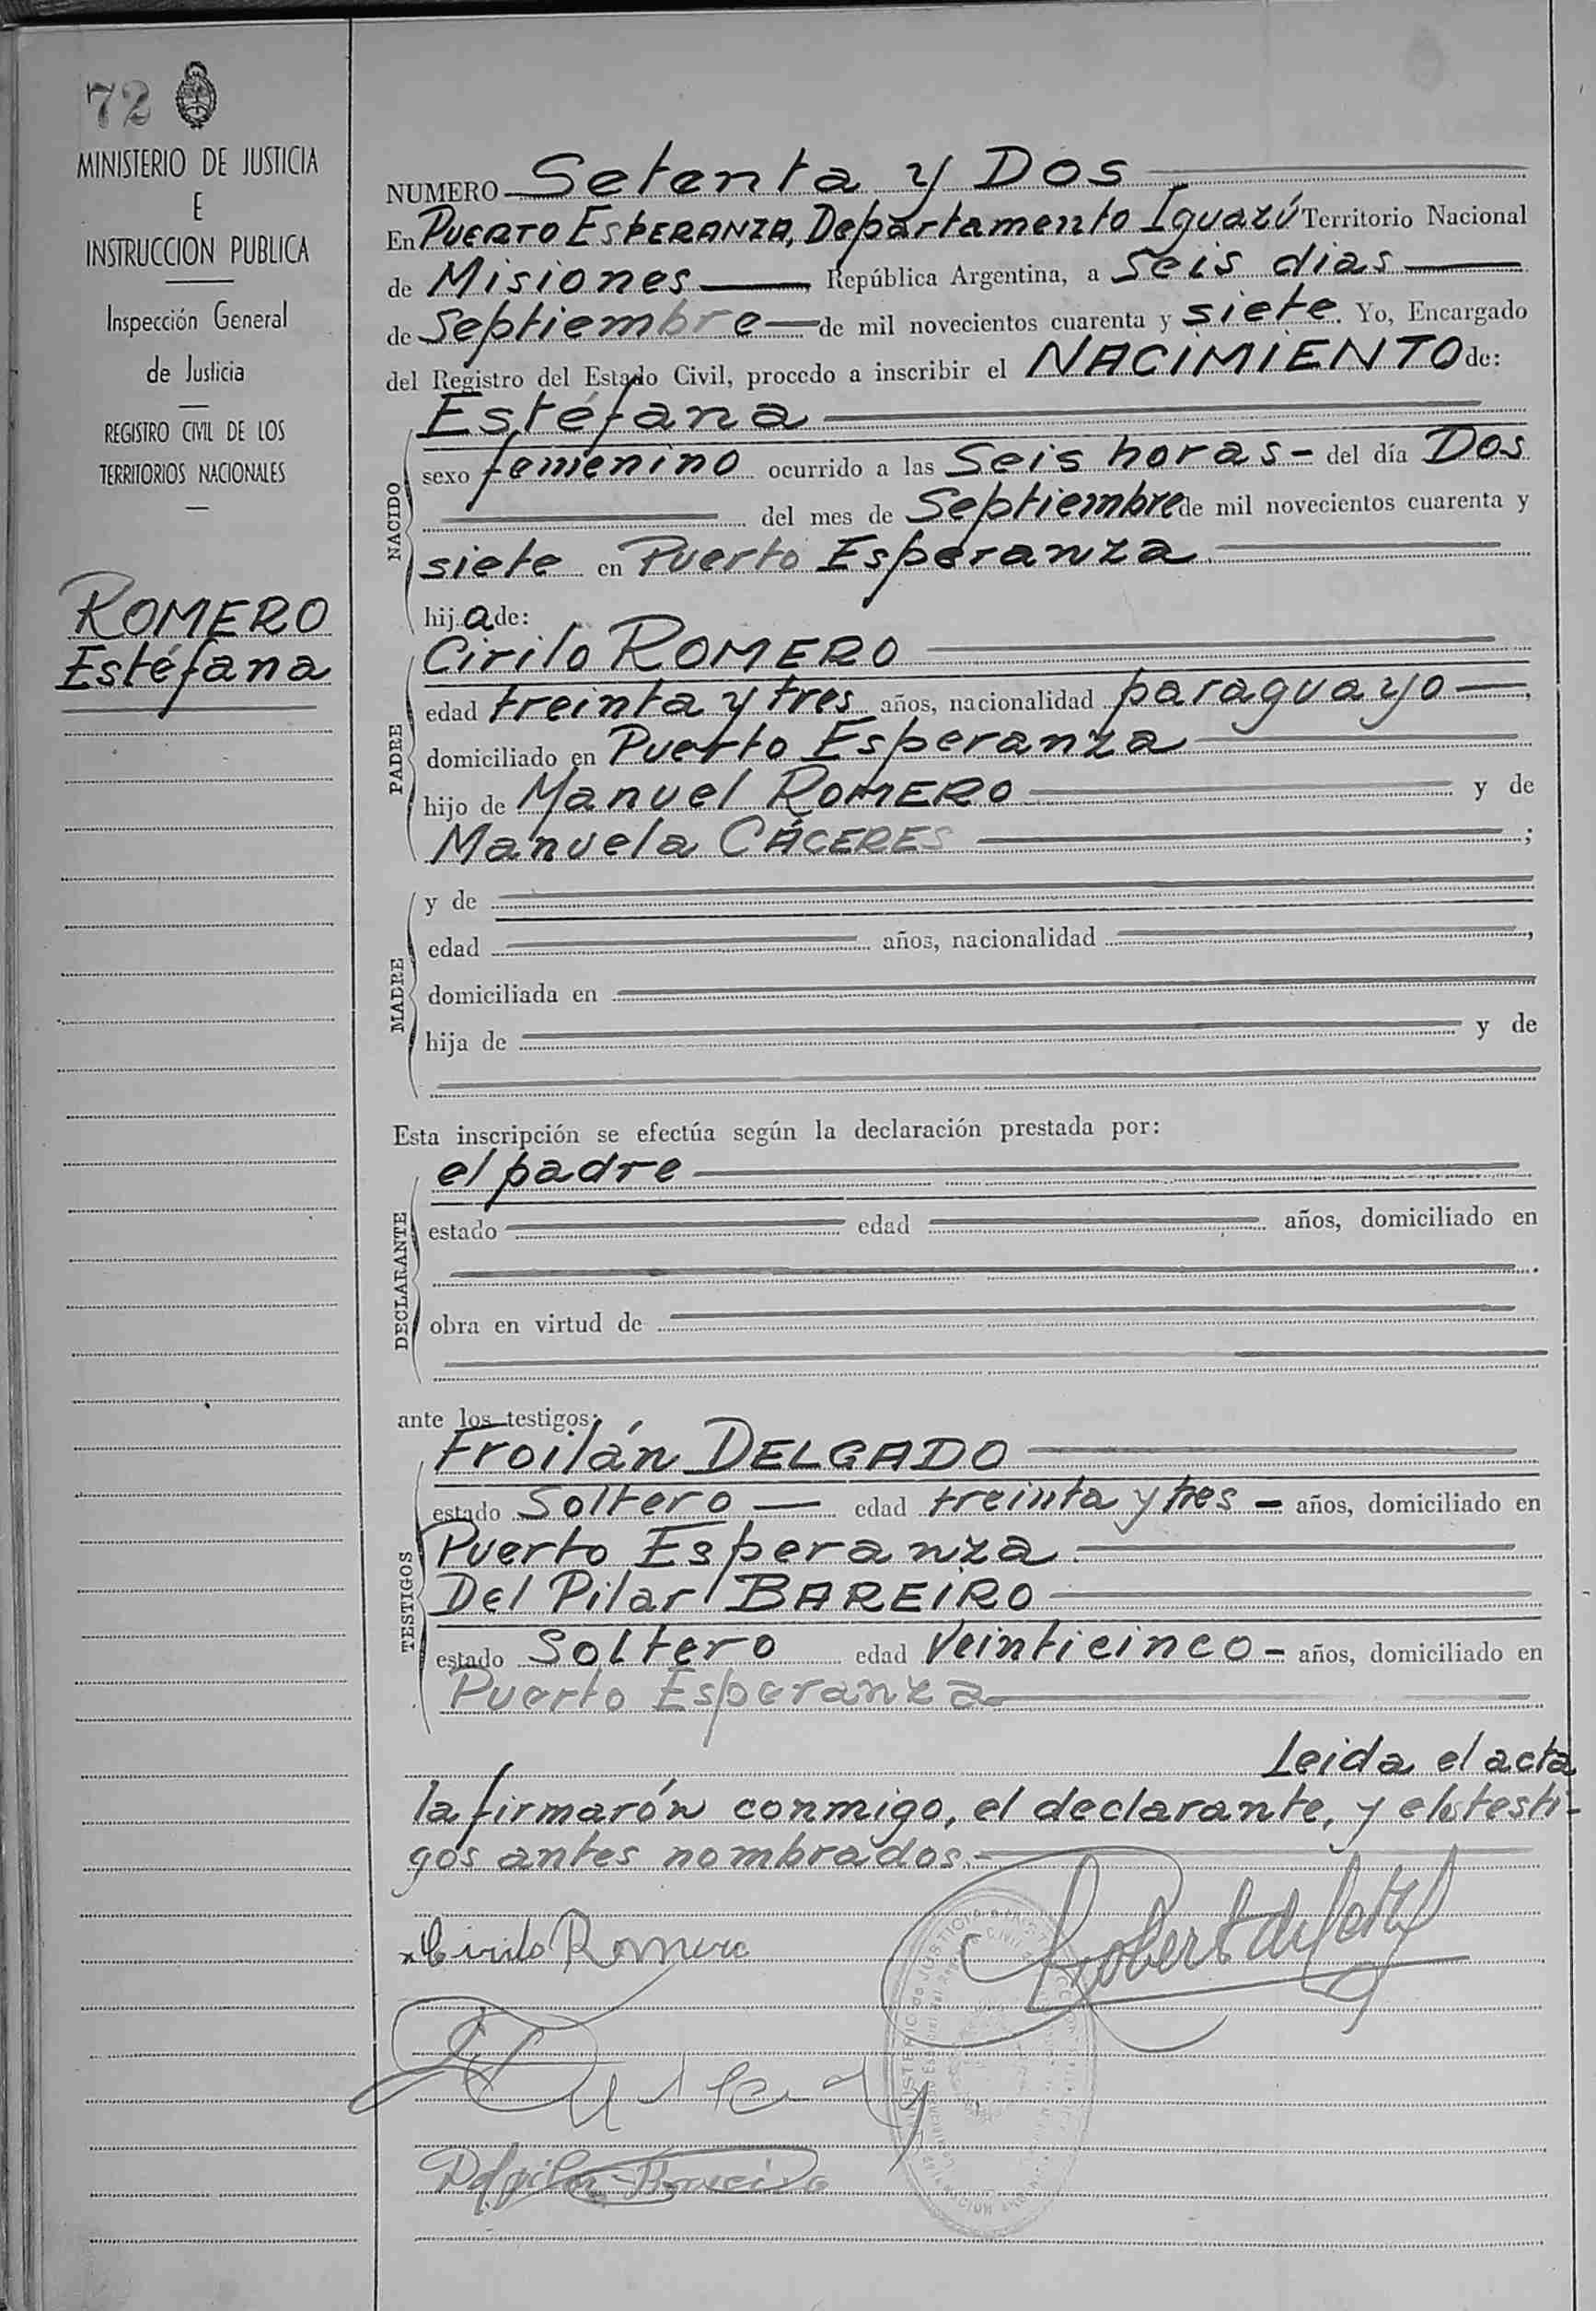 72
MINISTERIO DE JUSTICIA
E
INSTRUCCION PUBLICA
Inspección General
de Justicia
REGISTRO CIVIL DE LOS
TERRITORIOS NACIONALES
ROMERO
Estéfana
NUMERO Setenta y Dos
En PUERTO ESPERANZA, Departamento Iguazú Territorio Nacional
de Misiones República Argentina, a Seis dias
de Septiembre de mil novecientos cuarenta y siete. Yo, Encargado
del Registro del Estado Civil, procedo a inscribir el NACIMIENTO de:
NACIDO
Estéfana
sexo femenino ocurrido a las Seis horas - del día Dos
del mes de Septiembre de mil novecientos cuarenta y
siete en Puerto Esperanza
hija de:
PADRE
Cirilo ROMERO
edad treinta y tres años, nacionalidad paraguayo,
domiciliado en Puerto Esperanza
hijo de Manuel ROMERO y de
Manuela CÁCERES ;
MADRE
y de
edad años, nacionalidad ,
domiciliada en
hija de y de
Esta inscripción se efectúa según la declaración prestada por:
DECLARANTE
el padre
estado edad años, domiciliado en
obra en virtud de
ante los testigos:
TESTIGOS
Froilán DELGADO
estado Soltero — edad treinta y tres - años, domiciliado en
Puerto Esperanza
Del Pilar BAREIRO
estado Soltero edad Veinticinco - años, domiciliado en
Puerto Esperanza
Leida el acta
la firmarón conmigo, el declarante, y els testi-
gos antes nombrados.-
Cirilo Romero
Delpilar Bareiro